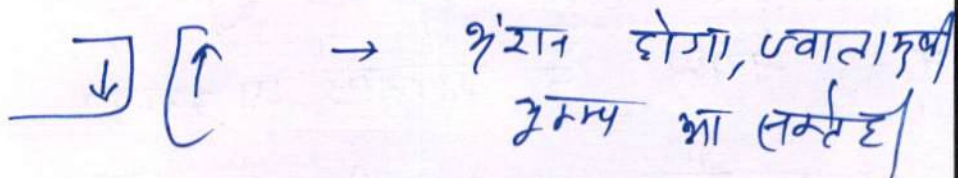 → भ्रंशन होगा, ज्वालामुखी
भूकम्प आ सकते है।